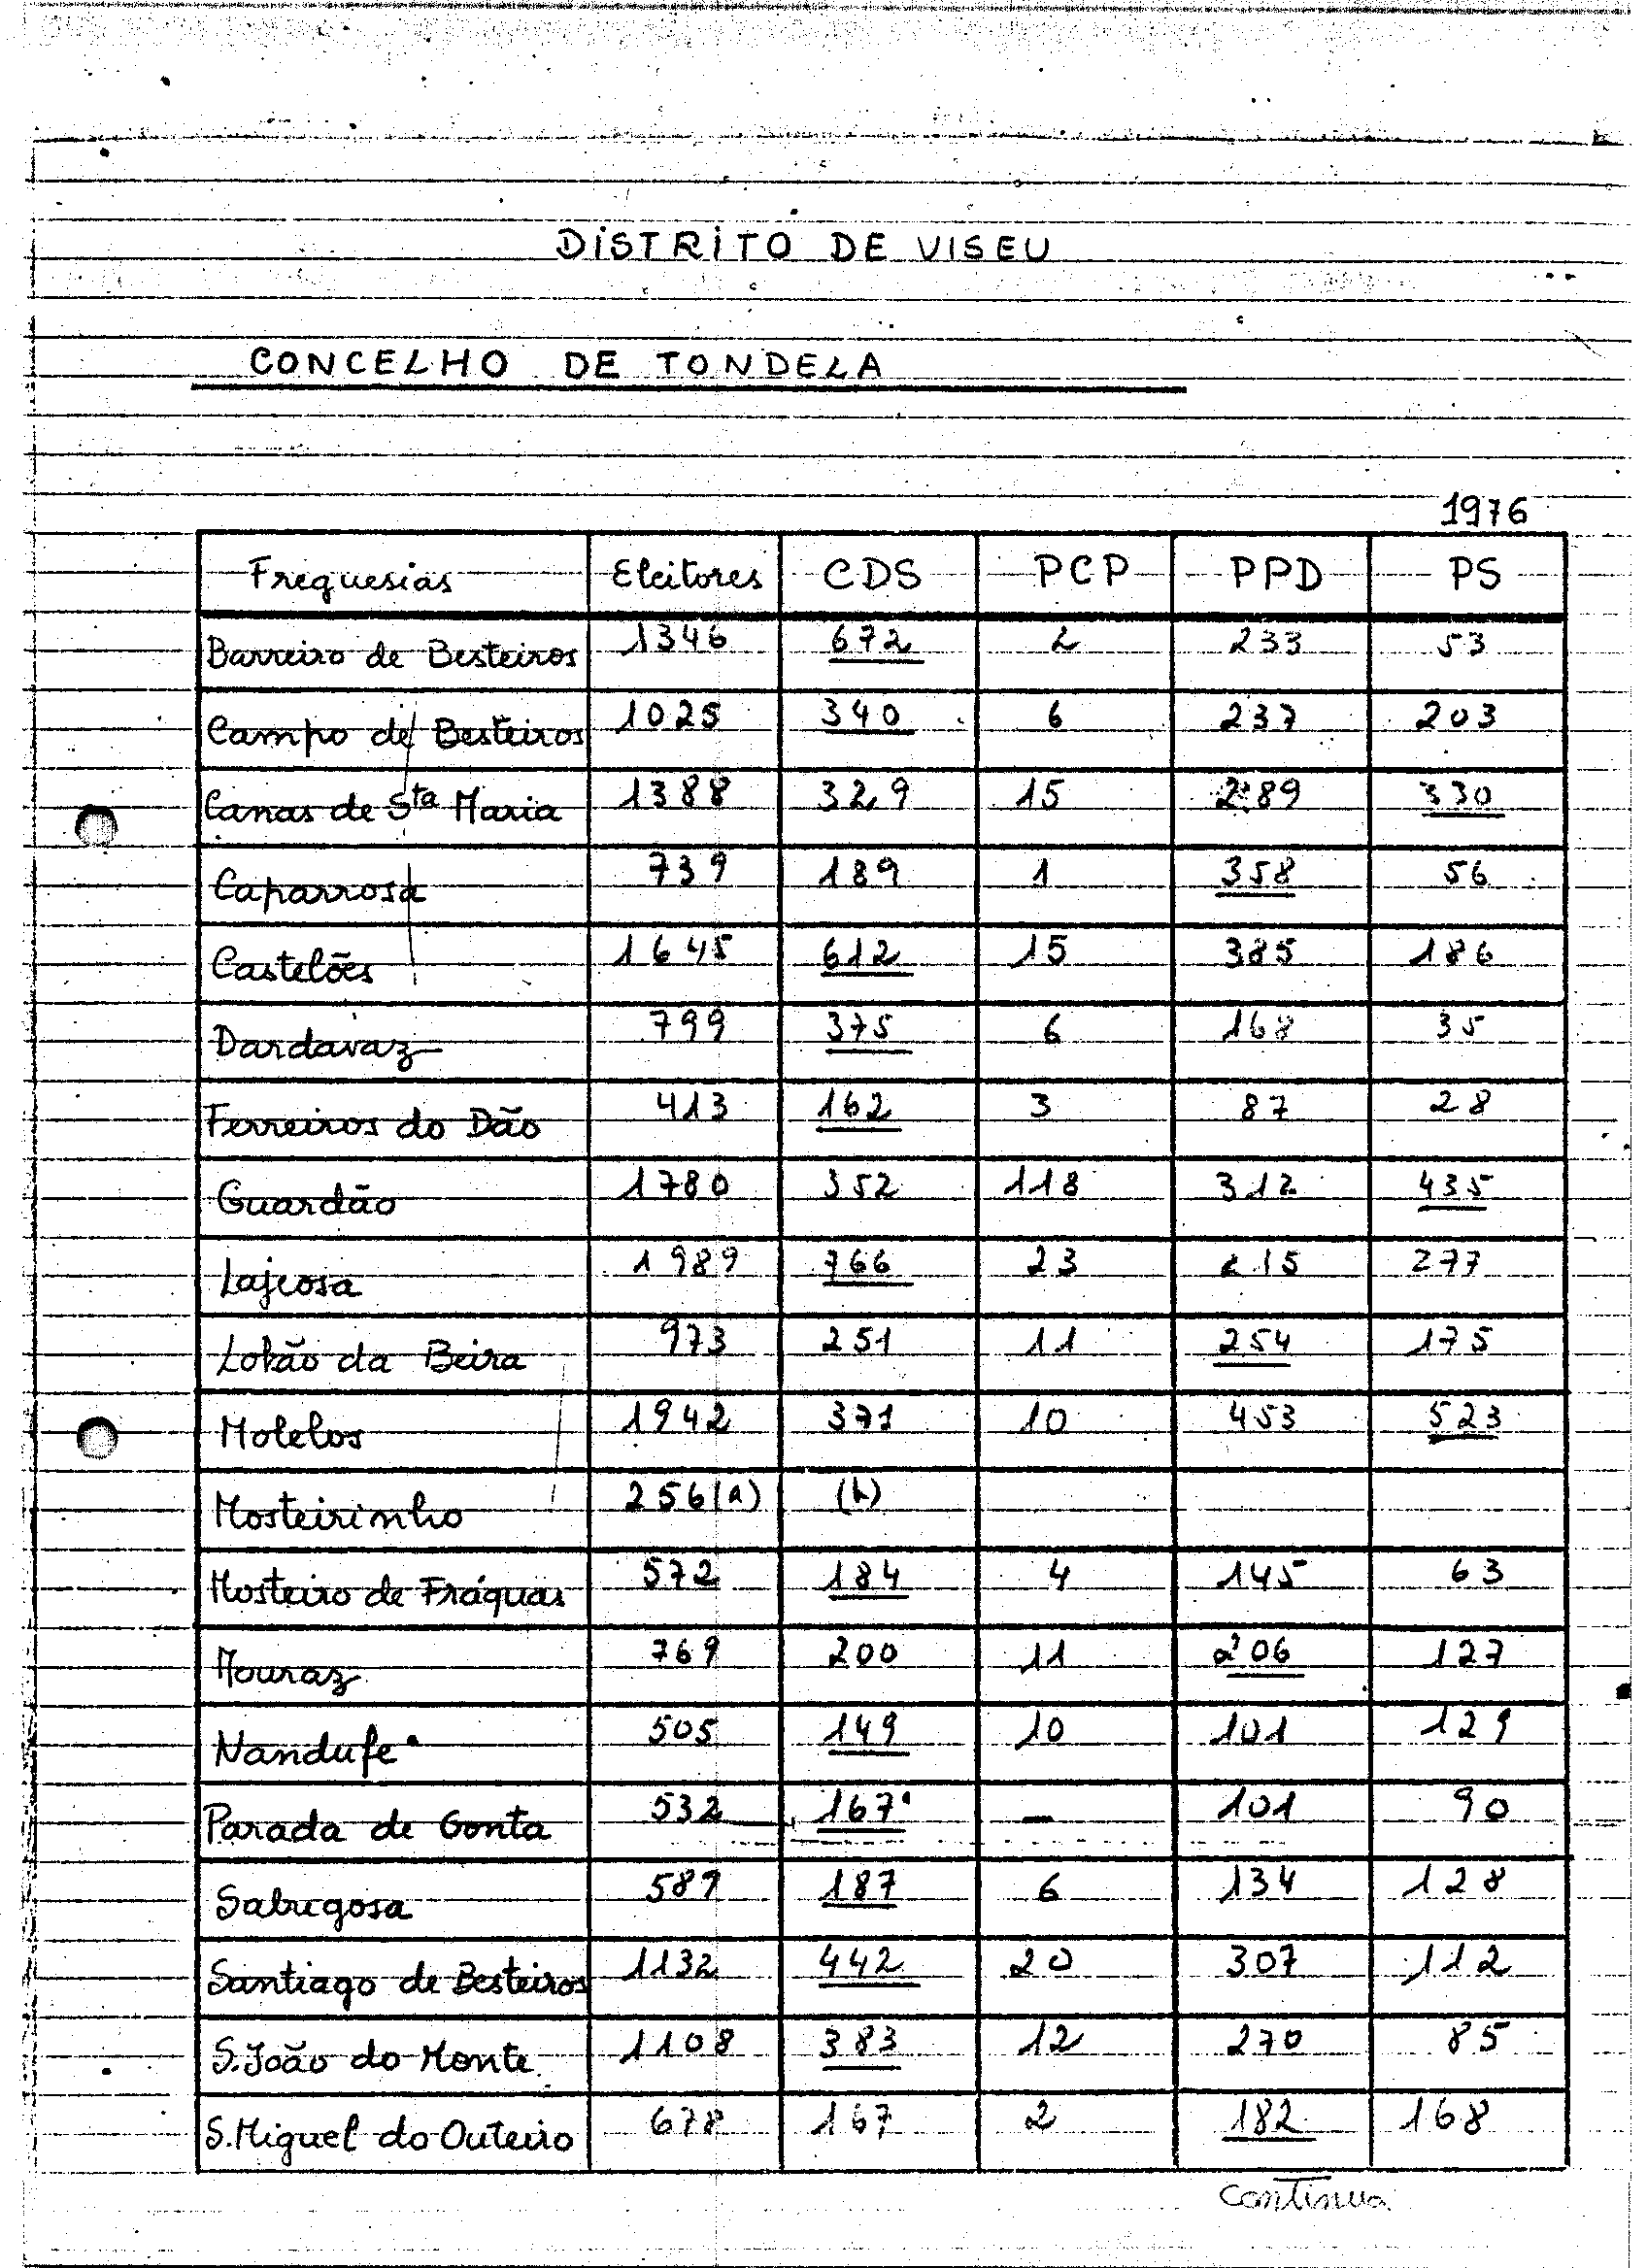 DISTRITO DE VISEU
CONCELHO DE TONDELA
1976
Freguesias Eleitores CDS PCP PPD PS
Barreiro de Besteiros 1346 672 2 233 53
Campo de Besteiros 1025 340 6 237 203
Canas de Sta Maria 1388 329 15 289 330
Caparrosa 739 189 1 358 56
Castelões 1645 612 15 385 186
Dardavaz 799 375 6 168 35
Ferreiros do Dão 413 162 3 87 28
Guardão 1780 352 118 312 435
Lajeosa 1989 766 23 215 277
Lobão da Beira 973 251 11 254 175
Molelos 1942 371 10 453 523
Mosteirinho 256(a) (b)
Mosteiro de Fráguas 572 184 4 145 63
Mouraz 769 200 11 206 127
Nandufe 505 149 10 101 129
Parada de Gonta 532 167 — 101 90
Sabugosa 589 187 6 134 128
Santiago de Besteiros 1132 442 20 307 112
S.João do Monte 1108 383 12 270 85
S.Miguel do Outeiro 678 167 2 182 168
Continua